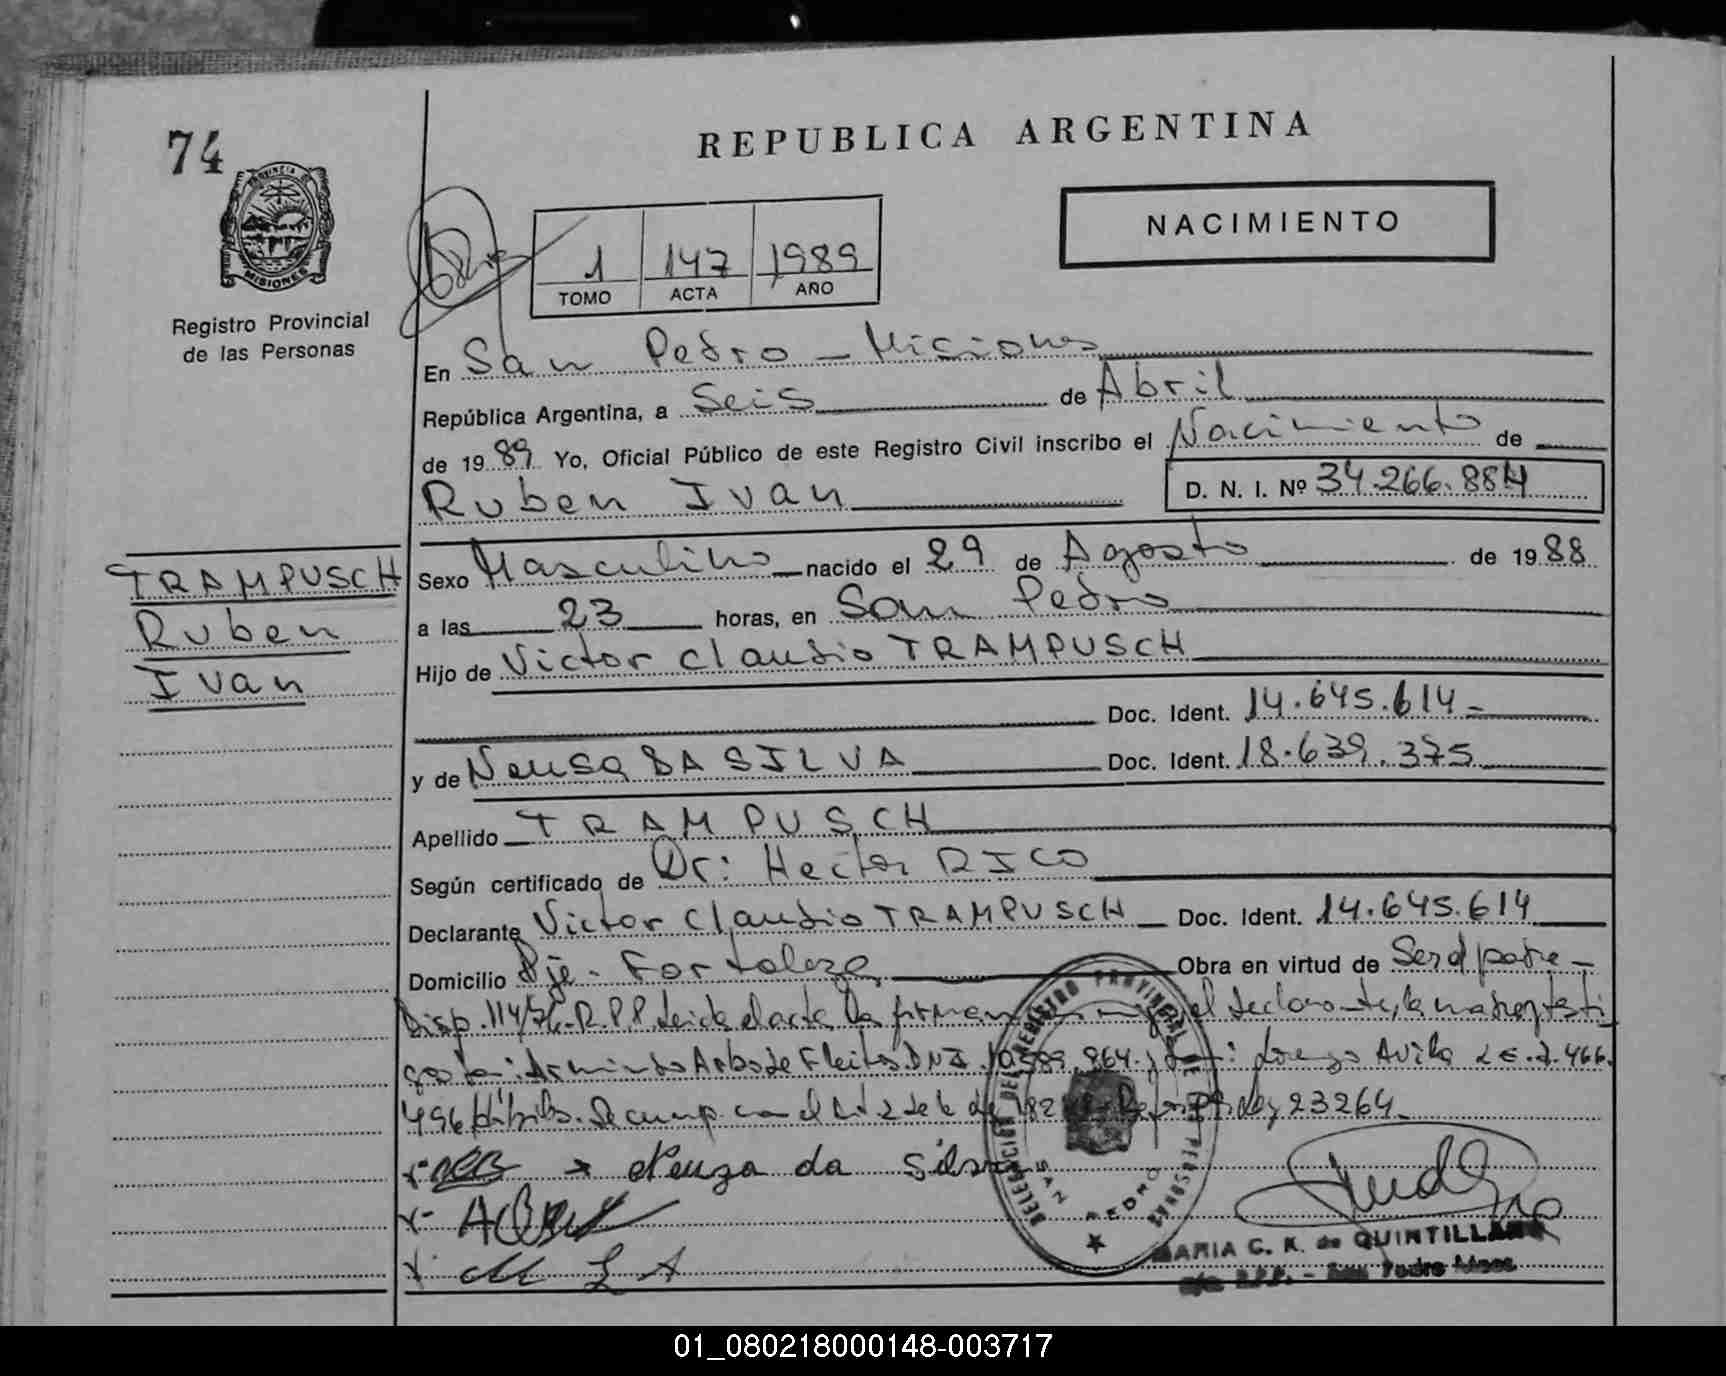 74
REPUBLICA ARGENTINA
NACIMIENTO
PROVINCIA DE
MISIONES
Registro Provincial
de las Personas
1 147 1989
TOMO ACTA AÑO
En San Pedro - Misiones
República Argentina, a Seis de Abril
de 19 89 Yo, Oficial Público de este Registro Civil inscribo el Nacimiento de
Ruben Ivan D. N. I. Nº 34.266.884
TRAMPUSCH
Ruben
Ivan
Sexo Masculino nacido el 29 de Agosto de 19 88
a las 23 horas, en San Pedro
Hijo de Victor Claudio TRAMPUSCH
Doc. Ident. 14.645.614
y de Neusa DA SILVA Doc. Ident. 18.639.375
Apellido TRAMPUSCH
Según certificado de Dr: Hector RICO
Declarante Victor Claudio TRAMPUSCH Doc. Ident. 14.645.614
Domicilio Pje. Fortaleza Obra en virtud de Ser el padre
Disp. 114/76 R.P.P. Leida el acta la firman el declarante, la madre y testi
gos : Armindo D.N.I. 10.589.864 y Lorenzo Avila L.E. 7.466.
496 Se cump. con el Art 2 de la Ley 23264
Neuza da Silva
L A
DELEGACION DEL REGISTRO PROVINCIAL DE LAS PERSONAS
SAN PEDRO
MARIA C. K. de QUINTILLAN
R.P.P. - San Pedro Mnes.
01_080218000148-003717